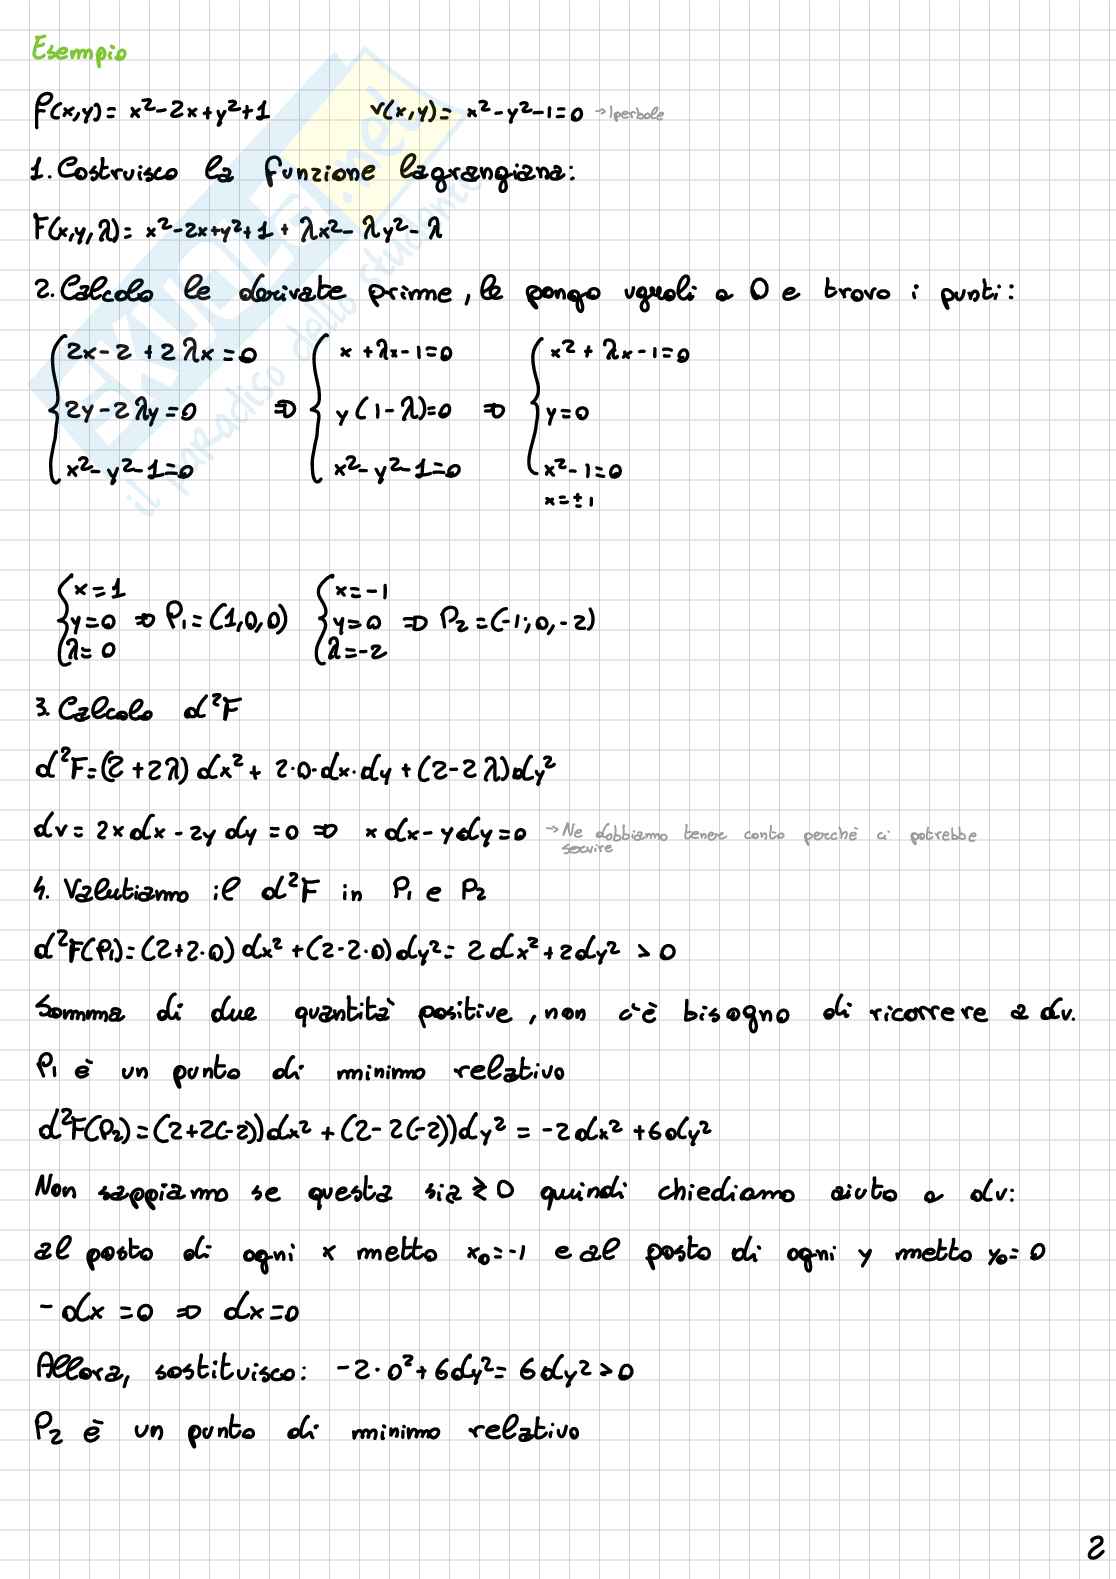 Esempio
f(x,y)= x²-2x+y²+1 v(x,y)= x²-y²-1=0 →Iperbole
1. Costruisco la funzione lagrangiana:
F(x,y,λ)= x²-2x+y²+1 + λx²- λy²- λ
2. Calcolo le derivate prime, le pongo uguali a 0 e trovo i punti:
{2x-2+2λx=0 {x+λx-1=0 {x²+λx-1=0
2y-2λy=0 ⇒ y(1-λ)=0 ⇒ y=0
x²-y²-1=0 x²-y²-1=0 x²-1=0
x=±1
{x=1 {x=-1
y=0 ⇒ P₁=(1,0,0) y=0 ⇒ P₂=(-1;0,-2)
λ=0 λ=-2
3. Calcolo d²F
d²F=(2+2λ) dx²+ 2·0·dx·dy+(2-2λ)dy²
dv= 2xdx-2y dy=0 ⇒ xdx-ydy=0 →Ne dobbiamo tenere conto perché ci potrebbe
servire
4. Valutiamo il d²F in P₁ e P₂
d²F(P₁)=(2+2·0) dx²+(2-2·0)dy²= 2dx²+2dy² > 0
Somma di due quantità positive, non c'è bisogno di ricorrere a dv.
P₁ è un punto di minimo relativo
d²F(P₂)=(2+2(-2))dx²+(2-2(-2))dy² = -2dx²+6dy²
Non sappiamo se questa sia ≷ 0 quindi chiediamo aiuto a dv:
al posto di ogni x metto x₀=-1 e al posto di ogni y metto y₀=0
-dx=0 ⇒ dx=0
Allora, sostituisco: -2·0²+6dy²= 6dy²>0
P₂ è un punto di minimo relativo
2
SKUOLA.net
il paradiso dello studente